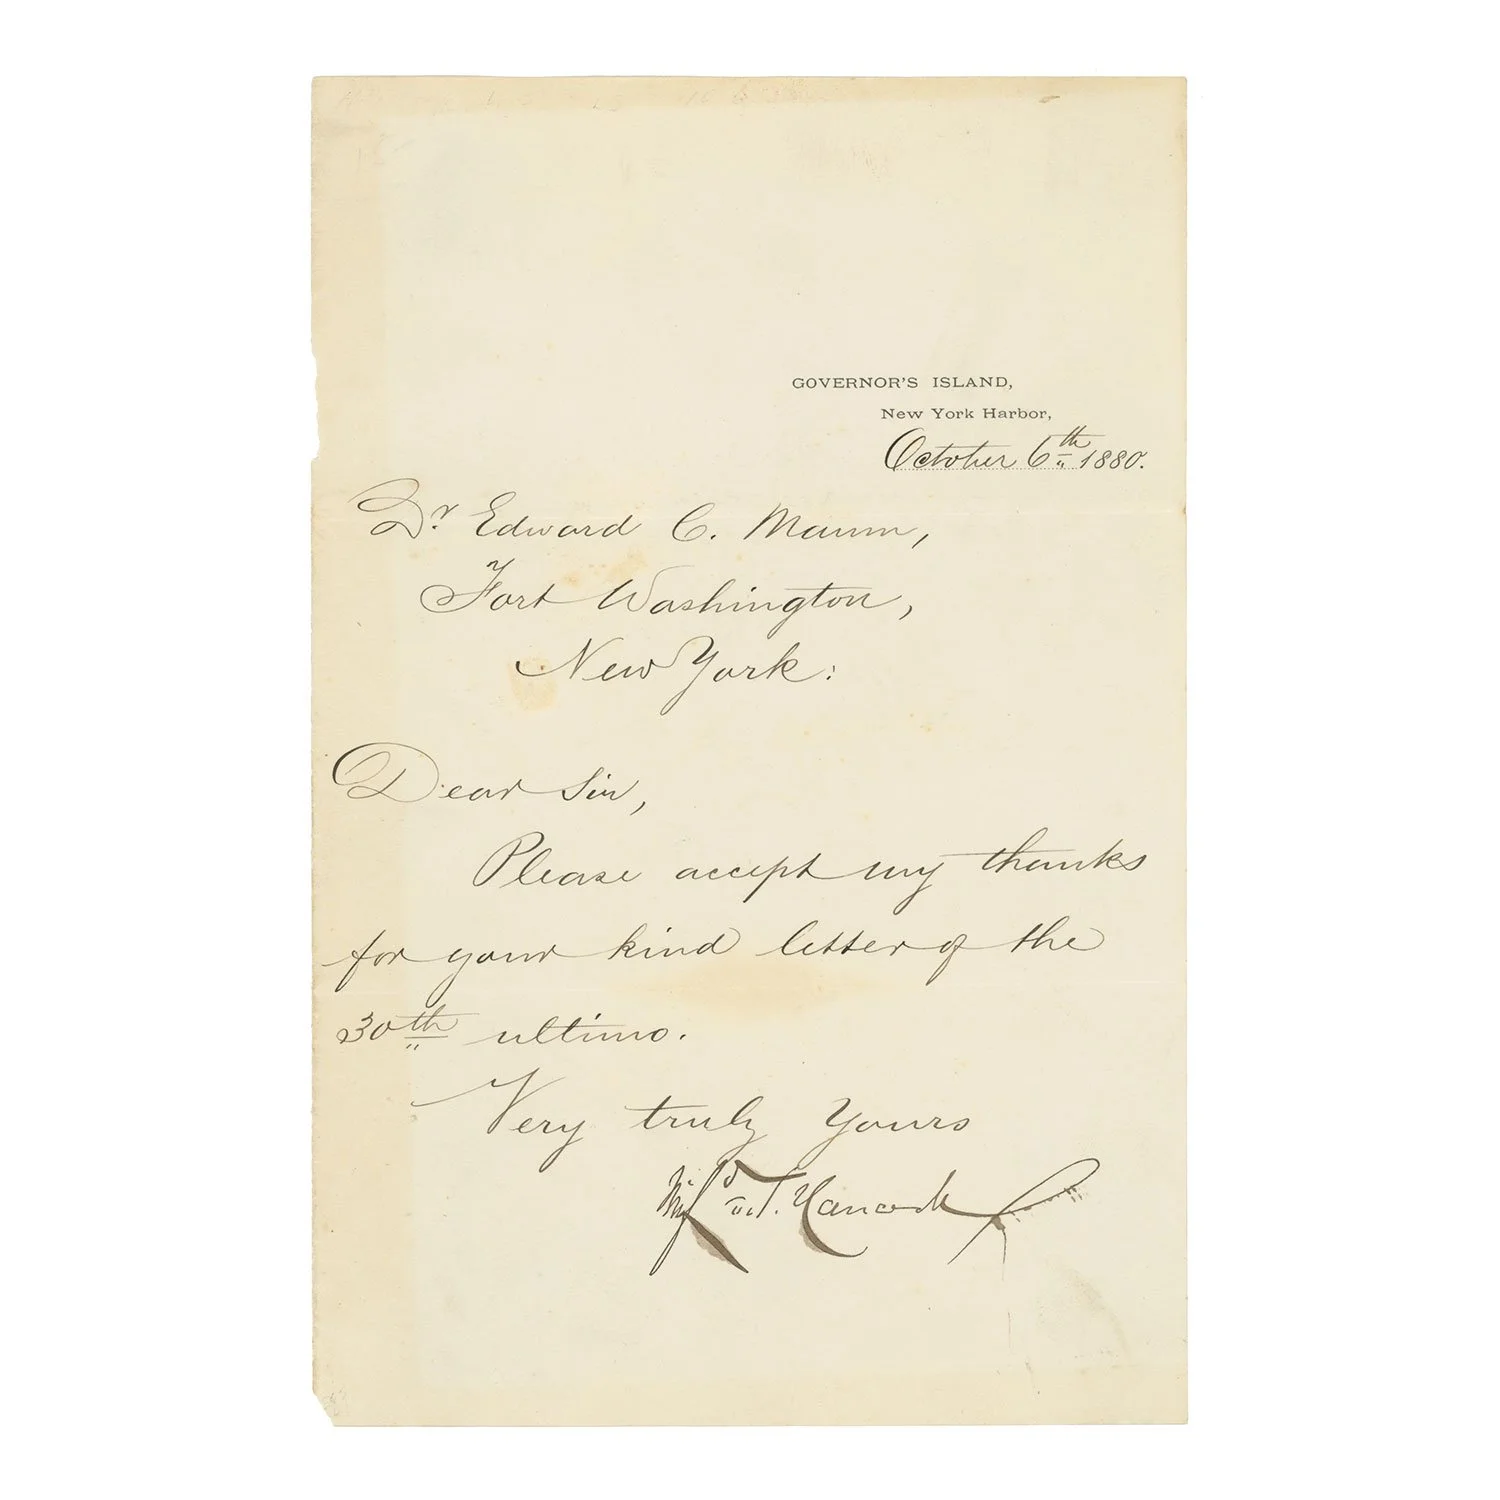 GOVERNOR'S ISLAND,
New York Harbor,
October 6th 1880.
Dr. Edward C. Mann,
Fort Washington,
New York:
Dear Sir,
Please accept my thanks
for your kind letter of the
30th ultimo.
Very truly Yours
Winfd S. Hancock